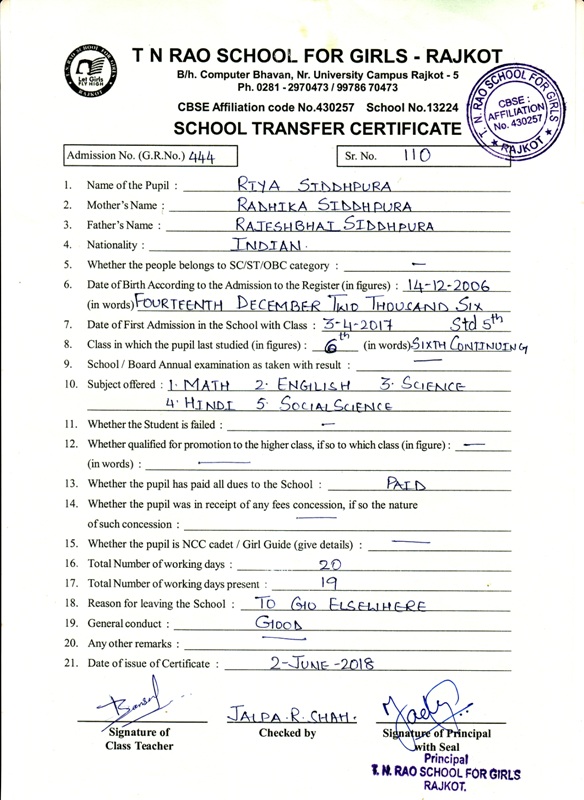 T N RAO SCHOOL FOR GIRLS - RAJKOT
B/h. Computer Bhavan, Nr. University Campus Rajkot - 5
Ph. 0281 - 2970473 / 99786 70473
CBSE Affiliation code No.430257 School No.13224
SCHOOL TRANSFER CERTIFICATE
T. N. RAO SCHOOL FOR GIRLS
RAJKOT
Let Girls
FLY HIGH
T. N. RAO SCHOOL FOR GIRLS
CBSE:
AFFILIATION
No. 430257
★ RAJKOT ★
Admission No. (G.R.No.) 444 Sr. No. 110
1. Name of the Pupil : RIYA SIDDHPURA
2. Mother's Name : RADHIKA SIDDHPURA
3. Father's Name : RAJESHBHAI SIDDHPURA
4. Nationality : INDIAN.
5. Whether the people belongs to SC/ST/OBC category : —
6. Date of Birth According to the Admission to the Register (in figures) : 14-12-2006
(in words) FOURTEENTH DECEMBER TWO THOUSAND SIX
7. Date of First Admission in the School with Class : 3-4-2017 Std 5th
8. Class in which the pupil last studied (in figures) : 6th (in words) SIXTH CONTINUING
9. School / Board Annual examination as taken with result : —
10. Subject offered : 1. MATH 2. ENGILISH 3. SCIENCE
4. HINDI 5. SOCIAL SCIENCE
11. Whether the Student is failed : —
12. Whether qualified for promotion to the higher class, if so to which class (in figure) : —
(in words) : —
13. Whether the pupil has paid all dues to the School : PAID
14. Whether the pupil was in receipt of any fees concession, if so the nature
of such concession : —
15. Whether the pupil is NCC cadet / Girl Guide (give details) : —
16. Total Number of working days : 20
17. Total Number of working days present : 19
18. Reason for leaving the School : TO GO ELSEWHERE
19. General conduct : GOOD
20. Any other remarks : —
21. Date of issue of Certificate : 2-JUNE-2018
JALPA.R.CHAH.
Signature of Checked by Signature of Principal
Class Teacher with Seal
Principal
T. N. RAO SCHOOL FOR GIRLS
RAJKOT.